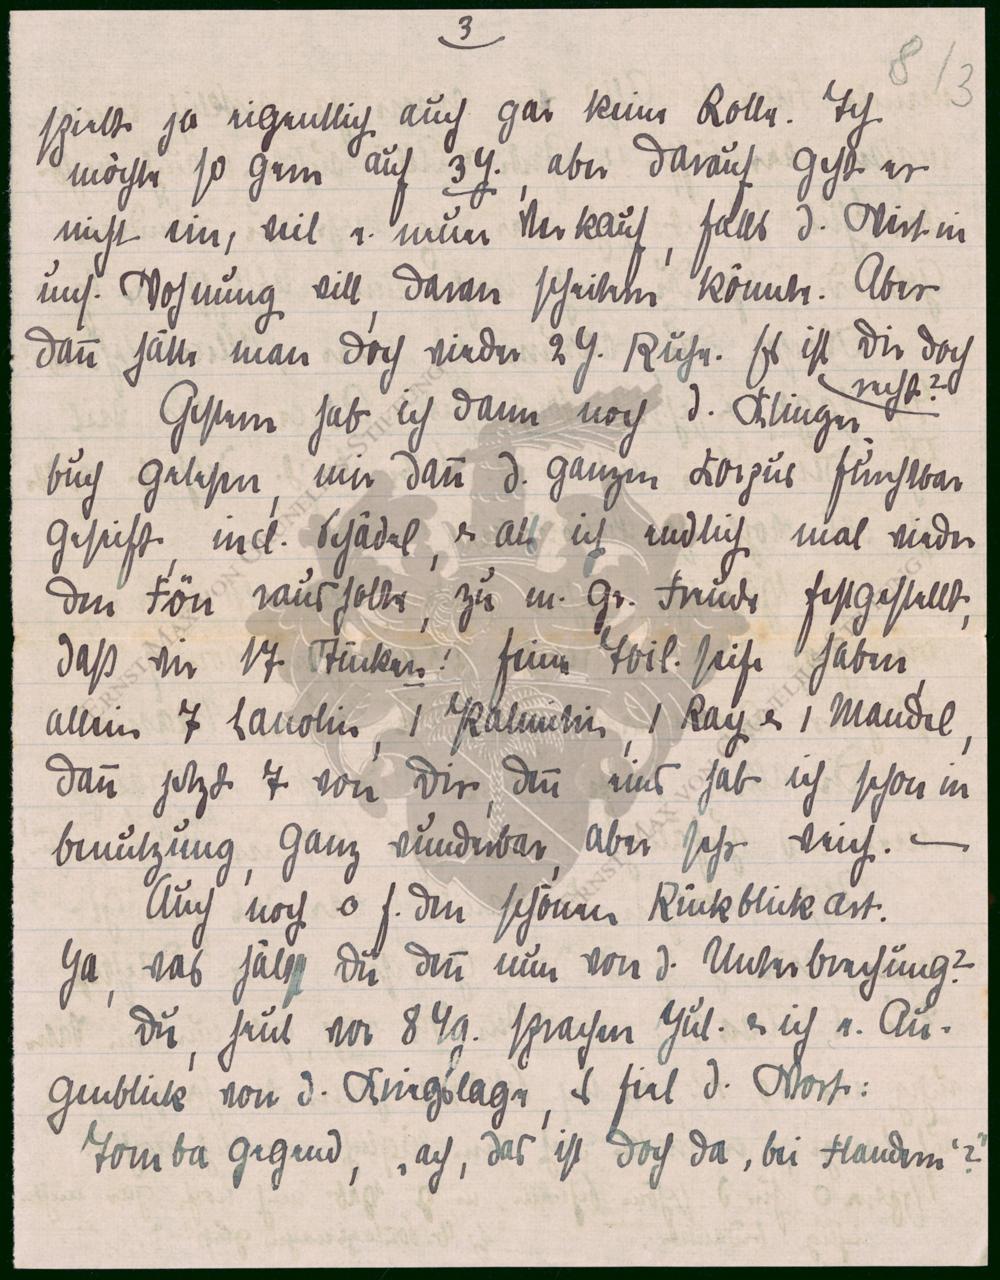 3
8/3
spielt ja eigentlich auch gar keine Rolle. Ich
möchte so gern auf 3 J., aber darauf geht er
nicht ein, weil e. neuer Verkauf, falls d. Wirt in
uns. Wohnung will, daran scheitern könnte. Aber
dañ hätte man doch wieder 2 J. Ruhe. Es ist Dir doch
recht?
Gestern hab ich dann noch d. Klinger
buch gelesen, mir dañ d. ganzen Korpus furchtbar
geseift, incl. Schädel, & als ich endlich mal wieder
den Fön raus holte, zu m. gr. Freude festgestellt,
daß wir 17 Stücken! feine Toil. seife haben,
allein 7 Lanolin, 1 , 1 Ray & 1 Mandel,
dañ jetzt 7 von Dir, deñ eins hab ich schon in
benutzung, ganz wunderbar, aber sehr weich. —
Auch noch o f. den schönen Rückblickart.
Ja, was hälst Du deñ nun von d. Unterbrechung?
Du, heut vor 8 Tg. sprachen Jul. & ich e. Au-
genblick von d. Kriegslage, & fiel d. Wort:
gegend, „ach, das ist doch da, bei Flandern"?"
ERNST MAX VON GRUNELIUS-STIFTUNG